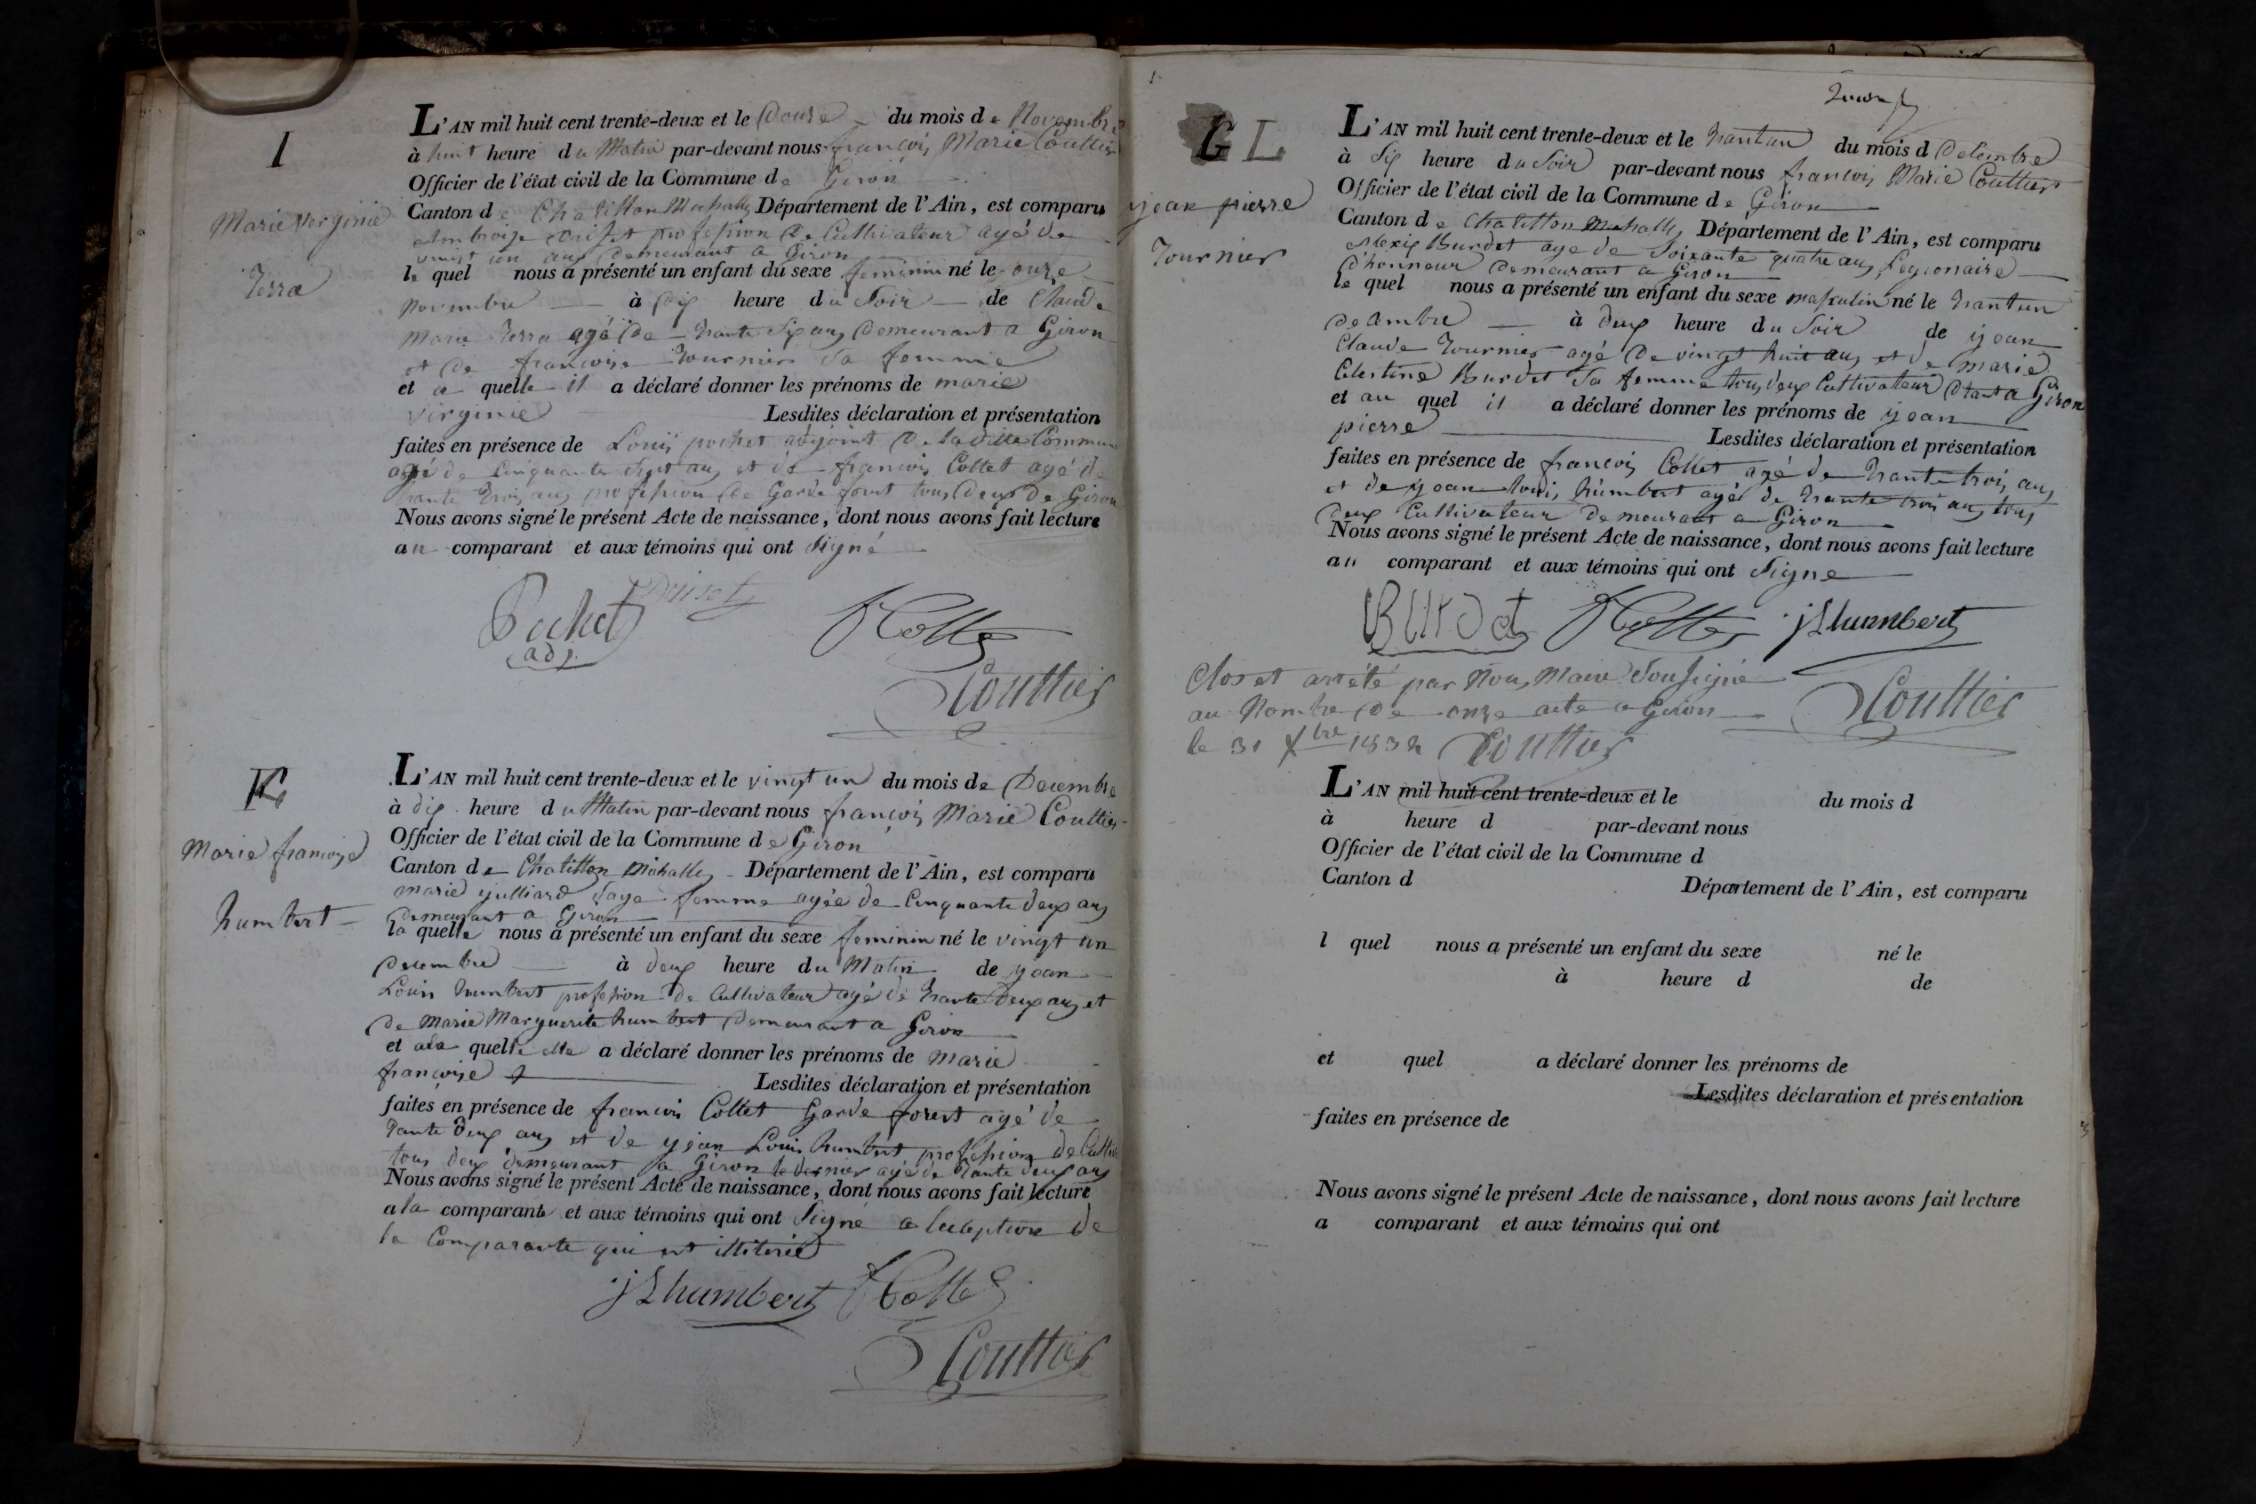 I
Marie Verginie
Terra
L'AN mil huit cent trente-deux et le Douze du mois de Novembre
à huit heure du Matin par-devant nous françois Marie Couttier
Officier de l'état civil de la Commune de Giron
Canton de Chatillon Michaille Département de l'Ain, est comparu
Ambroise profession De Cultivateur agé de
vingt un ans Demeurant a Giron
le quel nous a présenté un enfant du sexe feminin né le onze
Novembre à six heure du Soir de Claude
Marie Terra agé De trante six ans Demeurant a Giron
et de francoise Tournier Sa femme
et a quelle il a déclaré donner les prénoms de marie
virginie Lesdites déclaration et présentation
faites en présence de Louis pochet adjoint De la ditte Commune
agé de Cinquante Sept ans et de françois Collet agé de
trante trois ans profession De Garde foret tous Deux de Giron
Nous avons signé le présent Acte de naissance, dont nous avons fait lecture
au comparant et aux témoins qui ont Signé
Pochet
adj.
Collet
Couttier
K
Marie françoise
humbert
L'AN mil huit cent trente-deux et le vingt un du mois de Decembre
à dix heure du Matin par-devant nous françois Marie Couttier
Officier de l'état civil de la Commune de Giron
Canton de Chatillon Michaille Département de l'Ain, est comparu
marie julliard Sage femme agée de Cinquante deux ans
Demeurant a Giron
la quelle nous a présenté un enfant du sexe feminin né le vingt un
Decembre à deux heure du Matin de yean
Louis humbert profession de Cultivateur agé de trante Deux ans et
De Marie Marguerite humbert Demeurant a Giron
et a la quelle elle a déclaré donner les prénoms de Marie
françoise Lesdites déclaration et présentation
faites en présence de francois Collet Garde forest agé de
trante deux ans et de yean Louis humbert profession de
tous deux demeurant a Giron le dernier agé de trante deux ans
Nous avons signé le présent Acte de naissance, dont nous avons fait lecture
a la comparante et aux témoins qui ont Signé a lexception de
la Comparante qui est
jLhumbert Collet
Couttier
GL
yean pierre
Tournier
L'AN mil huit cent trente-deux et le trantun du mois d Decembre
à Six heure du Soir par-devant nous francois Marie Couttier
Officier de l'état civil de la Commune de Giron
Canton de Chatillon Michaille Département de l'Ain, est comparu
Alexis Burdet age de Soixante quatre ans Legionaire
d'honneur Demeurant a Giron
le quel nous a présenté un enfant du sexe masculin né le trantun
decembre à deux heure du Soir de yean
Claude Tournier agé De vingt huit ans et de marie
Celestine Burdet Sa femme tous deux Cultivateur a Giron
et au quel il a déclaré donner les prénoms de yean
pierre Lesdites déclaration et présentation
faites en présence de francois Collet agé de trante trois ans
et de yean Louis humbert agé de trante trois ans tous
deux Cultivateur demeurant a Giron
Nous avons signé le présent Acte de naissance, dont nous avons fait lecture
au comparant et aux témoins qui ont Signe
Burdet Collet jLhumbert
Clos et arrété par Nous Maire Sousigné
au Nombre de onze acte a Giron
le 31 Xbre 1832 Couttier
Couttier
L'AN mil huit cent trente-deux et le du mois d
à heure d par-devant nous
Officier de l'état civil de la Commune d
Canton d Département de l'Ain, est comparu
l quel nous a présenté un enfant du sexe né le
à heure d de
et quel a déclaré donner les prénoms de
Lesdites déclaration et présentation
faites en présence de
Nous avons signé le présent Acte de naissance, dont nous avons fait lecture
a comparant et aux témoins qui ont